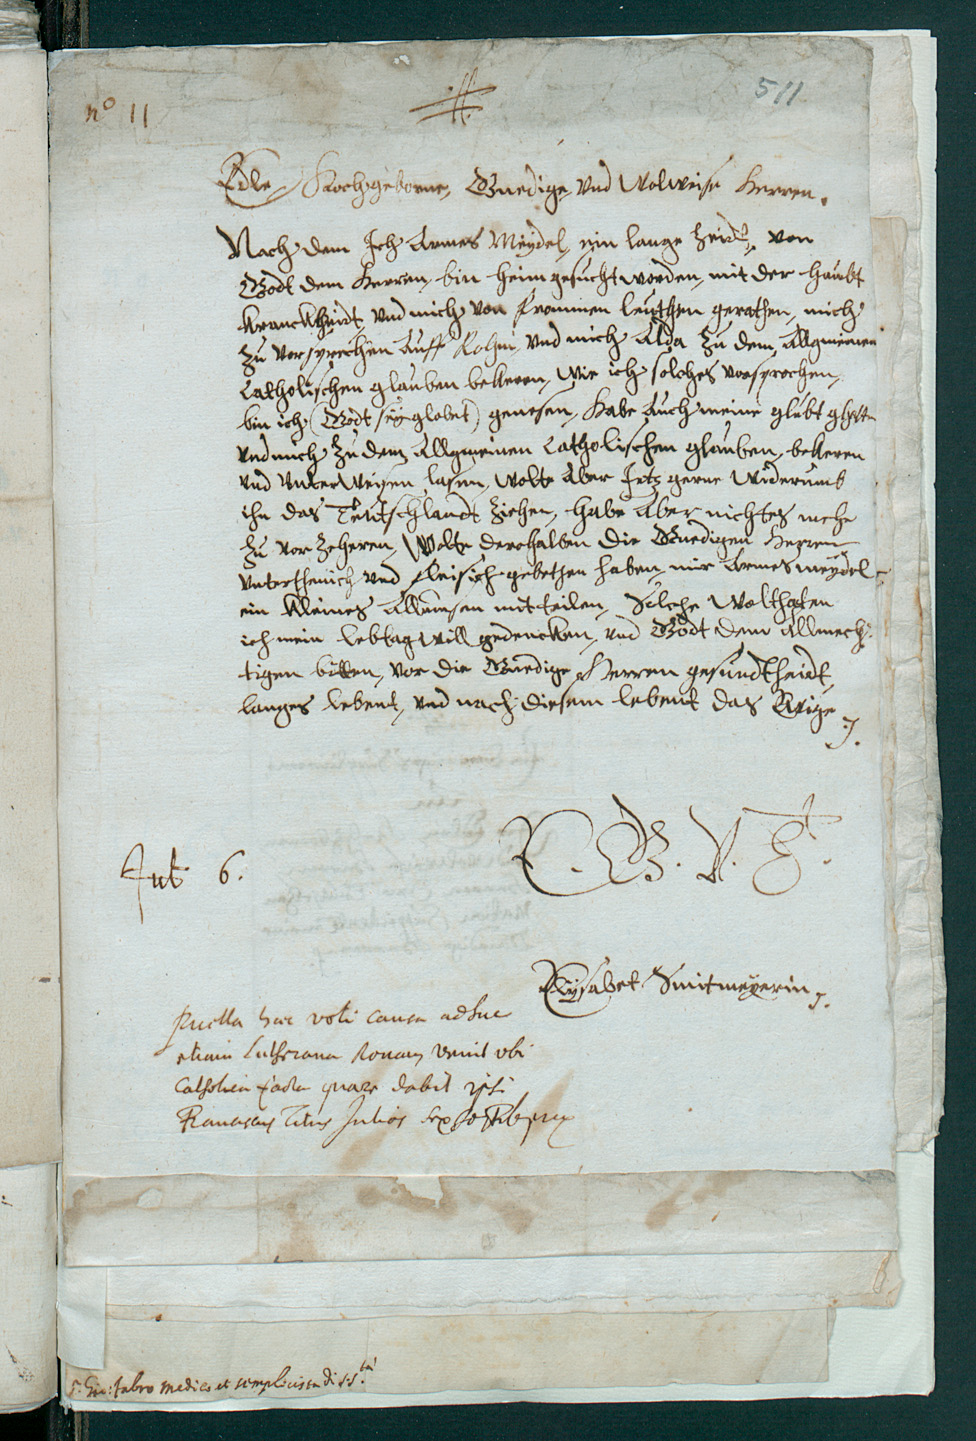 nº 11
511
Edle, Hochgeborne, Gnedige, Vnd Wolweise Herren.
Nach dem Ich Armes Meydel, ein lange Zeidt, von
Godt dem Herren, bin heimgesucht worden, mit der haubt
kranckheidt, Vnd mich von frommen leuthen gerathen, mich
Zu Vorsprechen Auff Rohm, Vnd mich Alda Zu dem Allgmeinen
Catholischen glauben bekeren, Wie ich solches vorsprochen,
bin ich (Godt sey globet) genesen, Habe Auch meine glubt
Vnd mich Zu dem Allgmeinen Catholischen glauben, bekeren
Vnd Vnterweisen lasen, Wolte Aber Jetz gerne Widerumb
ihn das Teutschlandt Ziehen, habe Aber nichtes mehr
Zu Vor Zeheren, Wolte derohalben die Gnedigen Herren
Vntertheinich Vnd fleisich gebethen haben, mir Armes meydel
ein kleines Allmusen mitteilen, Solche Wolthaten
ich mein lebtag will gedencken, Vnd Godt dem Allmech:
tigen bitten, vor die Gnedige Herren gesundtheidt,
langes lebent, Vnd nach diesem lebent das Ewige
E. G. V. G.
Jul 6.
Elysabet Smitmeyerin
Puella haec voti causa adhuc
etiam Lutherana Romam venit ubi
Catholica facta quare dabit ipsi
Franciscus Titus Julios sex
Gio: fabro medico et semplicista di S. Sta